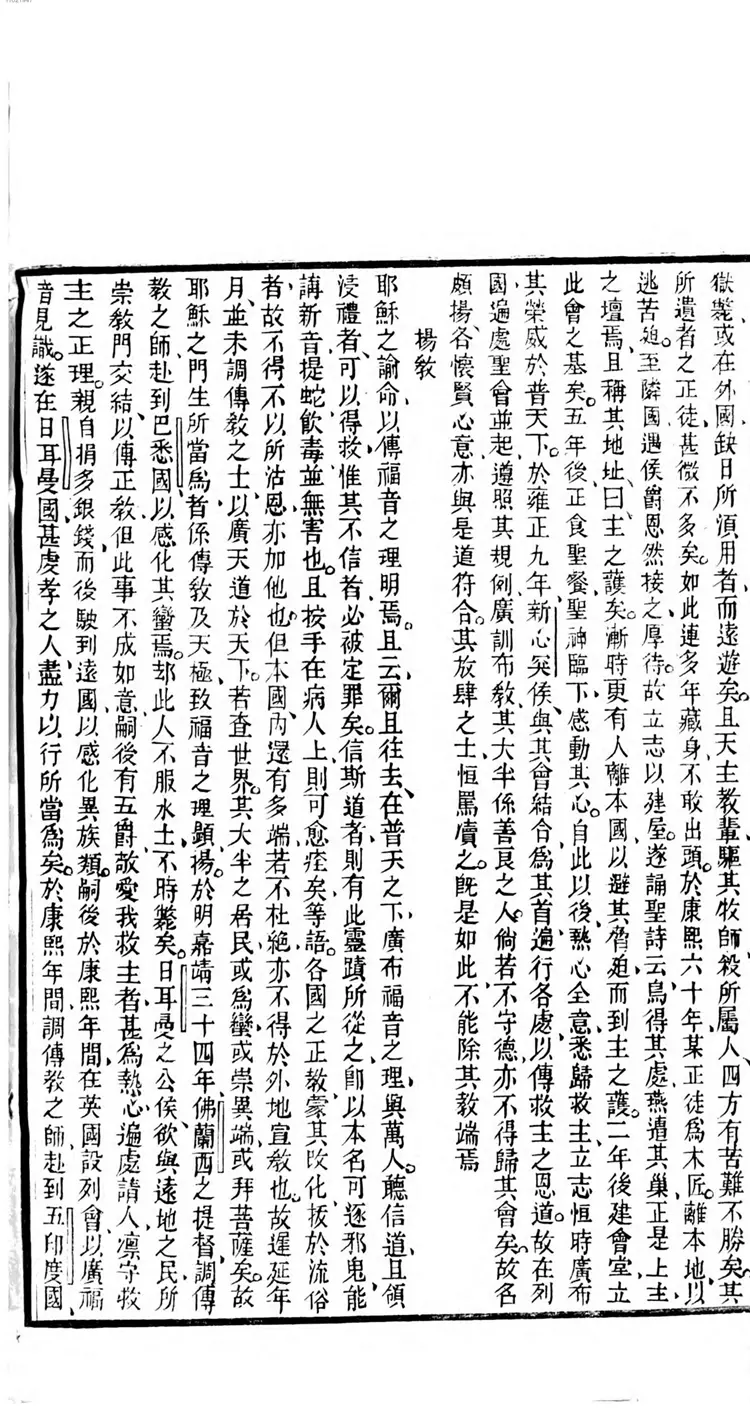 獄斃或在外國缺日所湏用者而遠遊矣且天主教輩驅其牧師殺所屬人四方有苦難不勝矣其
所遺者之正徒甚微不多矣如此連多年藏身不敢出頭於康熙六十年某正徒爲木匠離本地以
逃苦廹至隣國遇侯爵恩然接之厚待故立志以建屋遂誦聖詩云鳥得其處燕遭其巢正是上主
之壇焉且稱其地址曰主之護矣漸時更有人離本國以避其脅廹而到主之護二年後建會堂立
此會之基矣五年後正食聖餐聖神臨下感動其心自此以後熱心全意悉歸救主立志恒時廣布
其榮威於普天下於雍正九年新心矣侯與其會結合爲其首遍行各處以傳救主之恩道故在列
國遍處聖會並起遵照其規例廣訓布教其大半係善良之人倘若不守德亦不得歸其會矣故名
頗揚各懷賢心意亦與是道符合其放肆之士恒罵瀆之旣是如此不能除其教端焉
揚教
耶穌之諭命以傳福音之理明焉且云爾且往去在普天之下廣布福音之理與萬人聽信道且領
浸禮者可以得救惟其不信者必被定罪矣信斯道者則有此靈蹟所從之卽以本名可逐邪鬼能
講新音提蛇飲毒並無害也且按手在病人上則可愈痊矣等語各國之正教蒙其改化拔於流俗
者故不得不以所沾恩亦加他也但本國內還有多端若不杜絶亦不得於外地宣教也故遲延年
月並未調傳教之士以廣天道於天下若查世界其大半之居民或爲蠻或崇異端或拜菩薩矣故
耶穌之門生所當爲者係傳教及天極致福音之理顯揚於明嘉靖三十四年佛蘭西之提督調傳
教之師赴到巴悉國以感化其蠻焉却此人不服水土不時斃矣日耳曼之公侯欲與遠地之民所
崇教門交結以傳正教但此事不成如意嗣後有五爵敬愛我救主者甚爲熱心遍處請人凛守救
主之正理親自捐多銀錢而後駛到遠國以感化異族類嗣後於康熙年間在英國設列會以廣福
音見識遂在日耳曼國甚虔孝之人盡力以行所當爲矣於康熙年間調傳教之師赴到五印度國